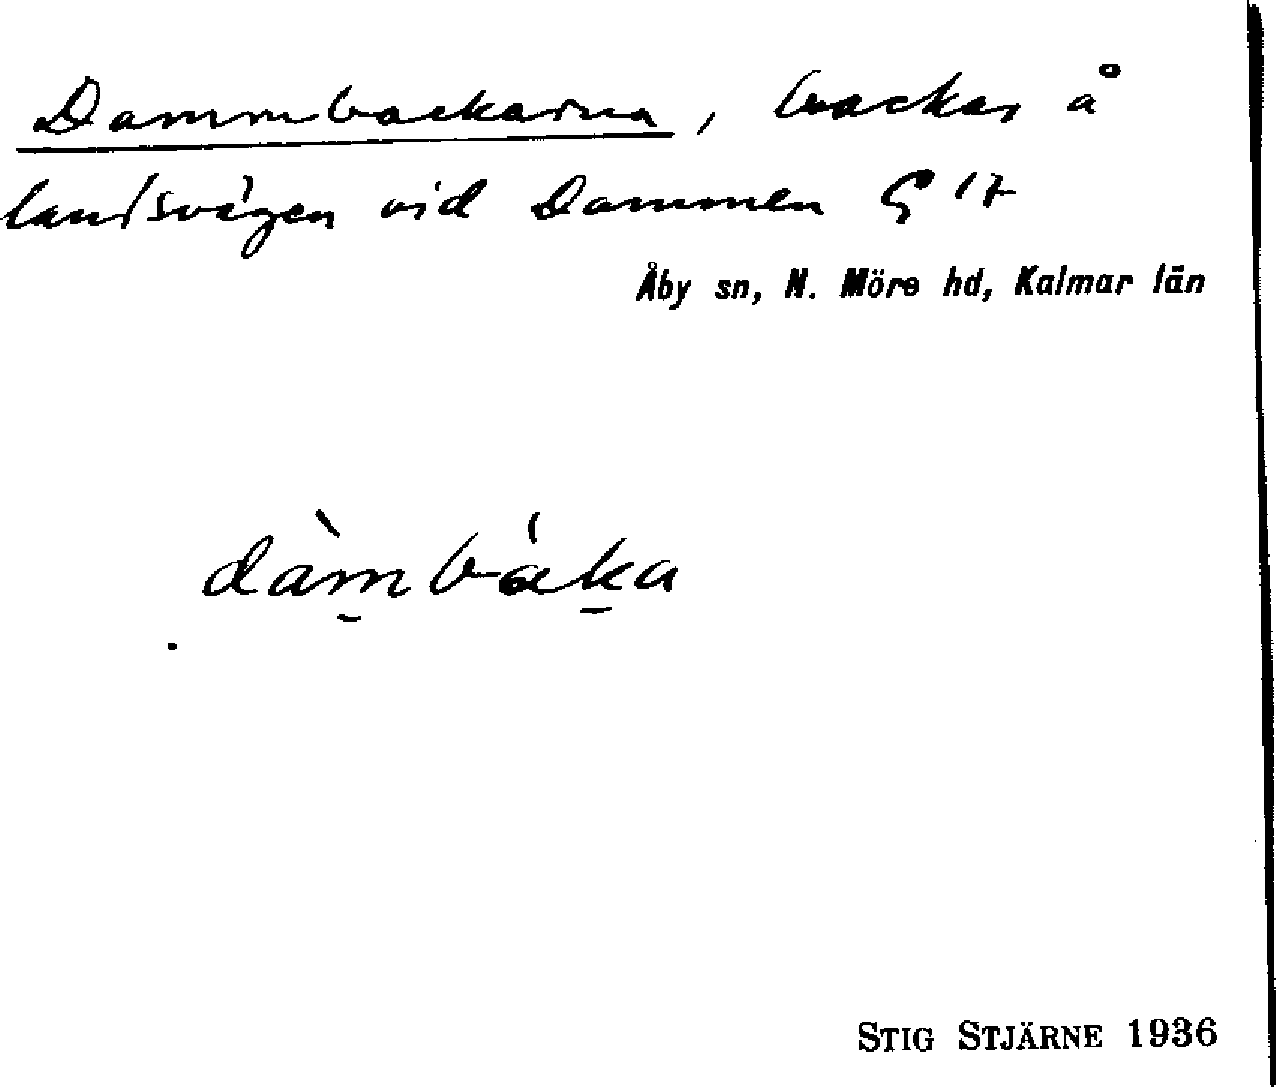 Dammbackarna, backar å
landsvägen vid Dammen G 17
Åby sn, N. Möre hd, Kalmar län
dàm̱báḵa
STIG STJÄRNE 1936